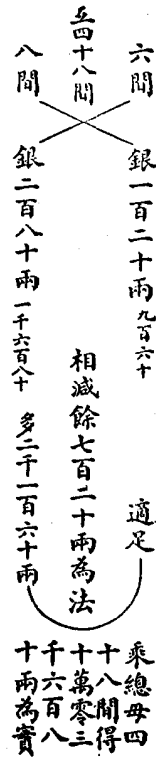 六間
銀一百二十兩九百六十
適足
互四十八間
相減餘七百二十兩為法
八間
銀二百八十兩一千六百八十
多二千一百六十兩
乘總母四
十八間得
十萬零三
千六百八
十兩為實